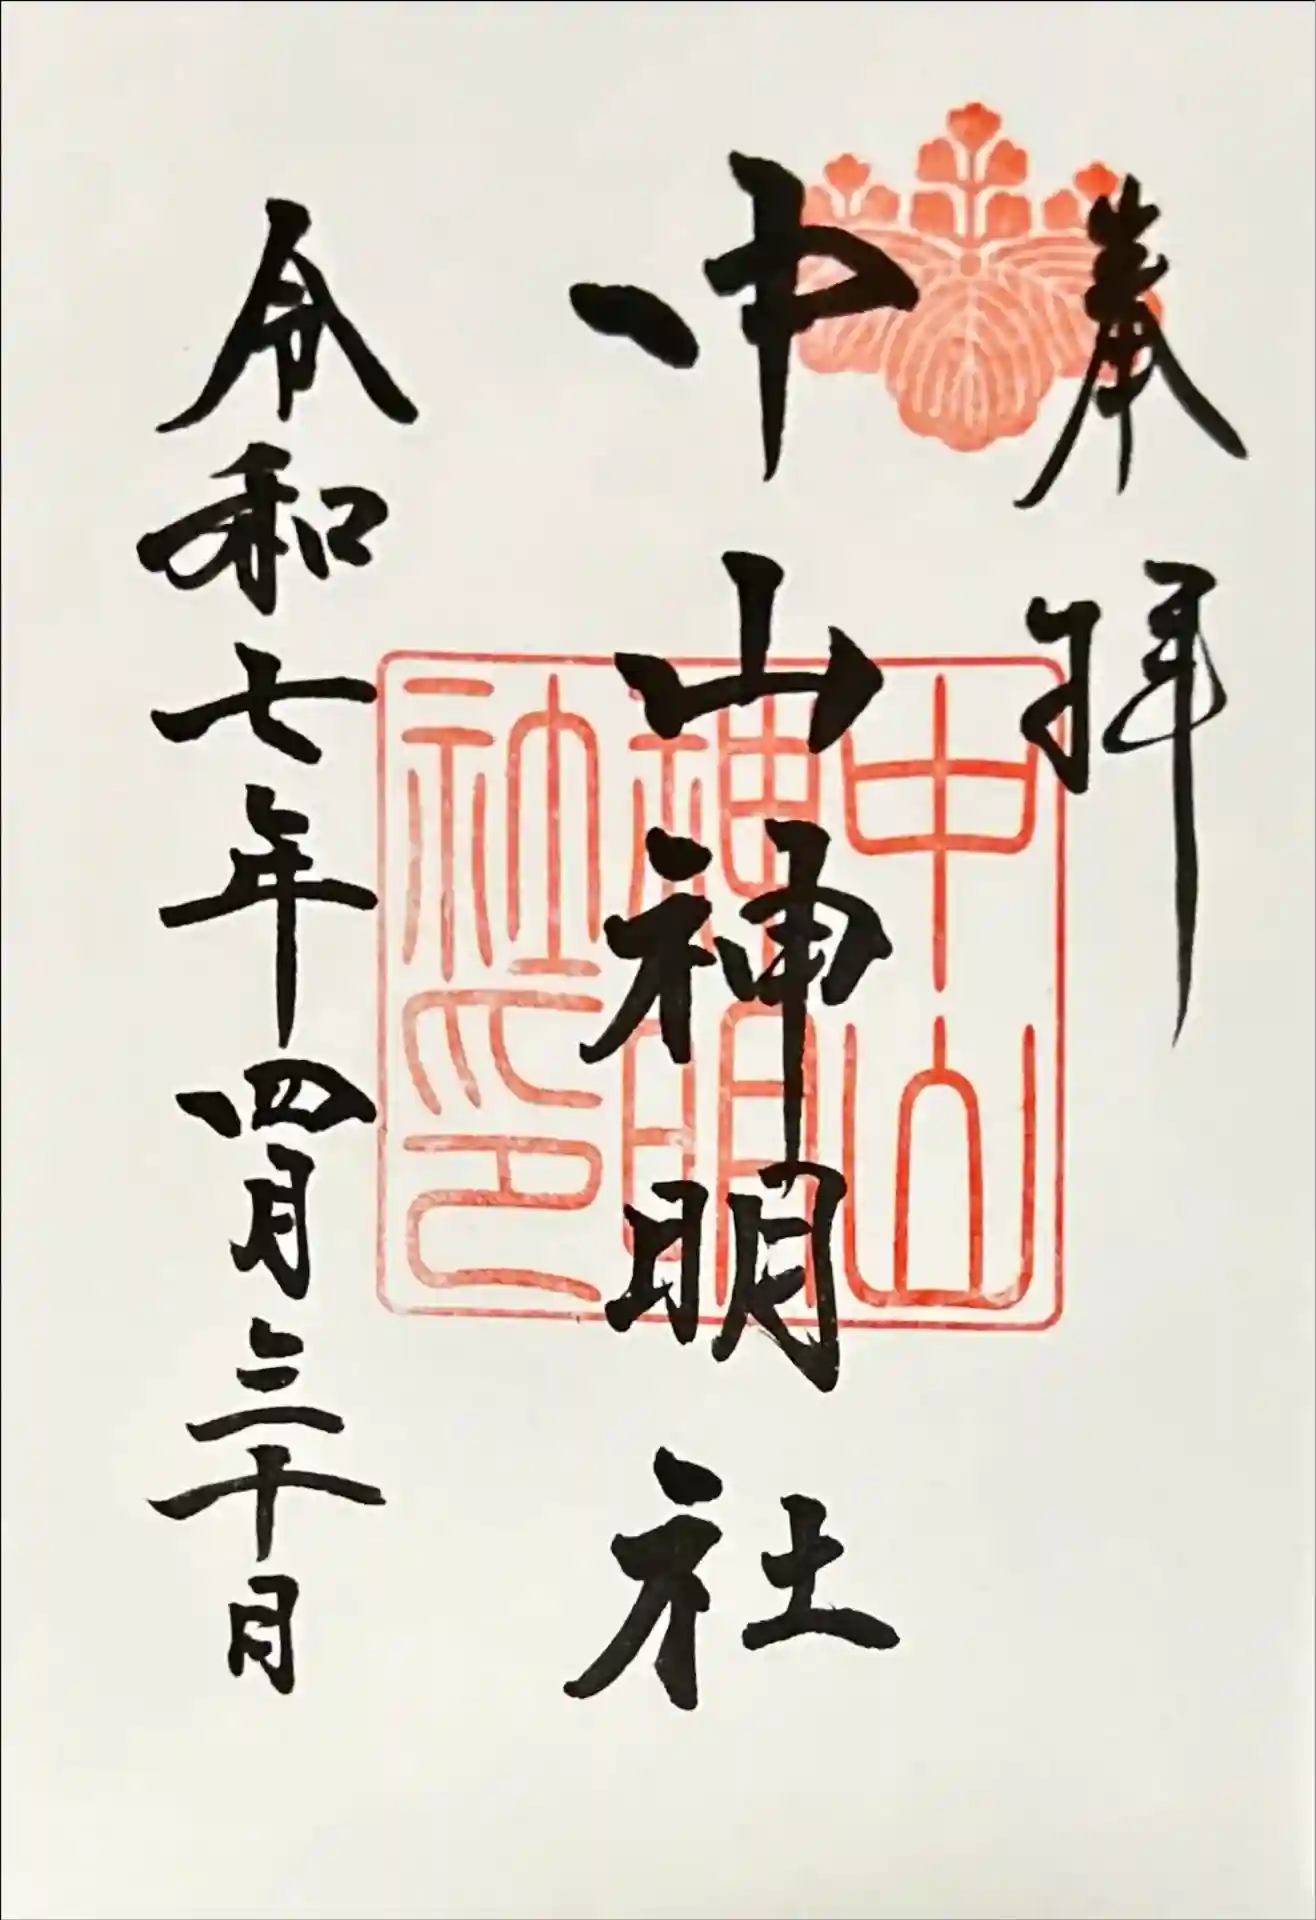 奉拝
中山神明社
中山神明社印
令和七年四月三十日